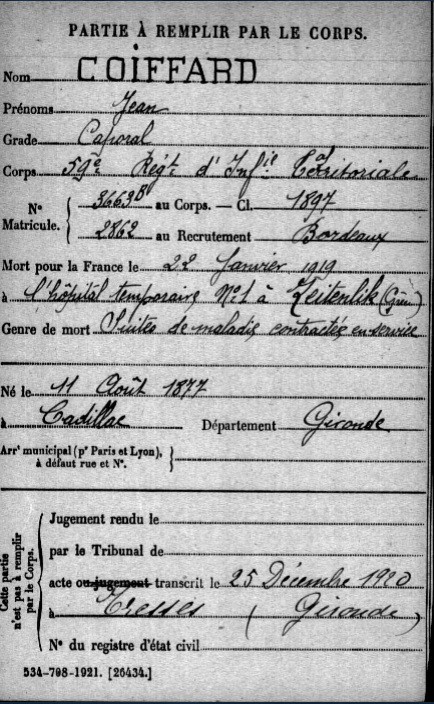 PARTIE À REMPLIR PAR LE CORPS.
Nom COIFFARD
Prénoms Jean
Grade Caporal
Corps 59e Régt d'Infie Territoriale
No Matricule. 3663B au Corps. — Cl. 1897
2862 au Recrutement Bordeaux
Mort pour la France le 22 Janvier 1919
à l'hôpital temporaire No 1 à Zeitenlik (Grèce)
Genre de mort Suites de maladie contractée en service
Né le 11 Août 1877
à Cadillac Département Gironde
Arrt municipal (pr Paris et Lyon), à défaut rue et No.
Cette partie n'est pas à remplir par le Corps.
Jugement rendu le
par le Tribunal de
acte ou jugement transcrit le 25 Décembre 1920
à Tresses (Gironde)
No du registre d'état civil
534-708-1921. [26434.]